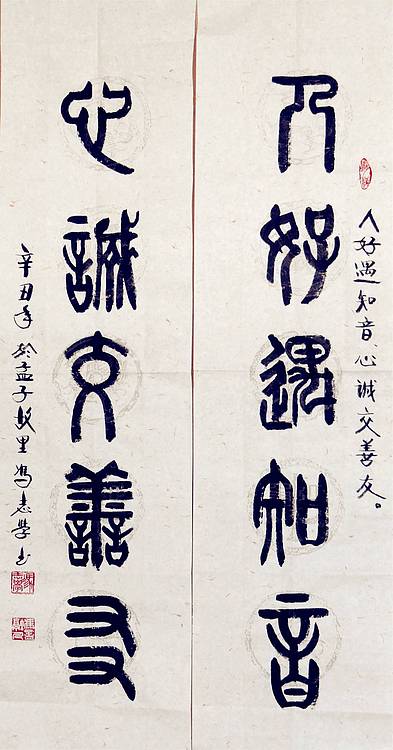 人好遇知音、心诚交善友。
人好遇知音
心誠交善友
辛丑年於孟子故里冯志学书